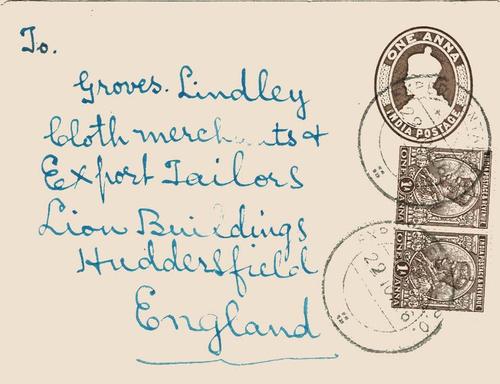 To.
Groves. Lindley
Cloth merchants &
Export Tailors
Lion Buildings
Huddersfield
England
ONE ANNA
INDIA POSTAGE
ONE 1A ANNA
ONE 1A ANNA